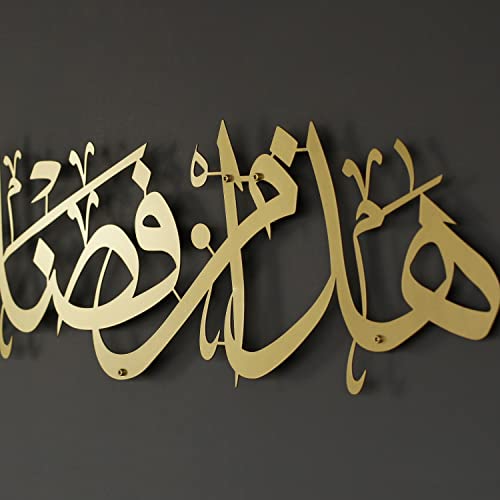 هذا من فضل